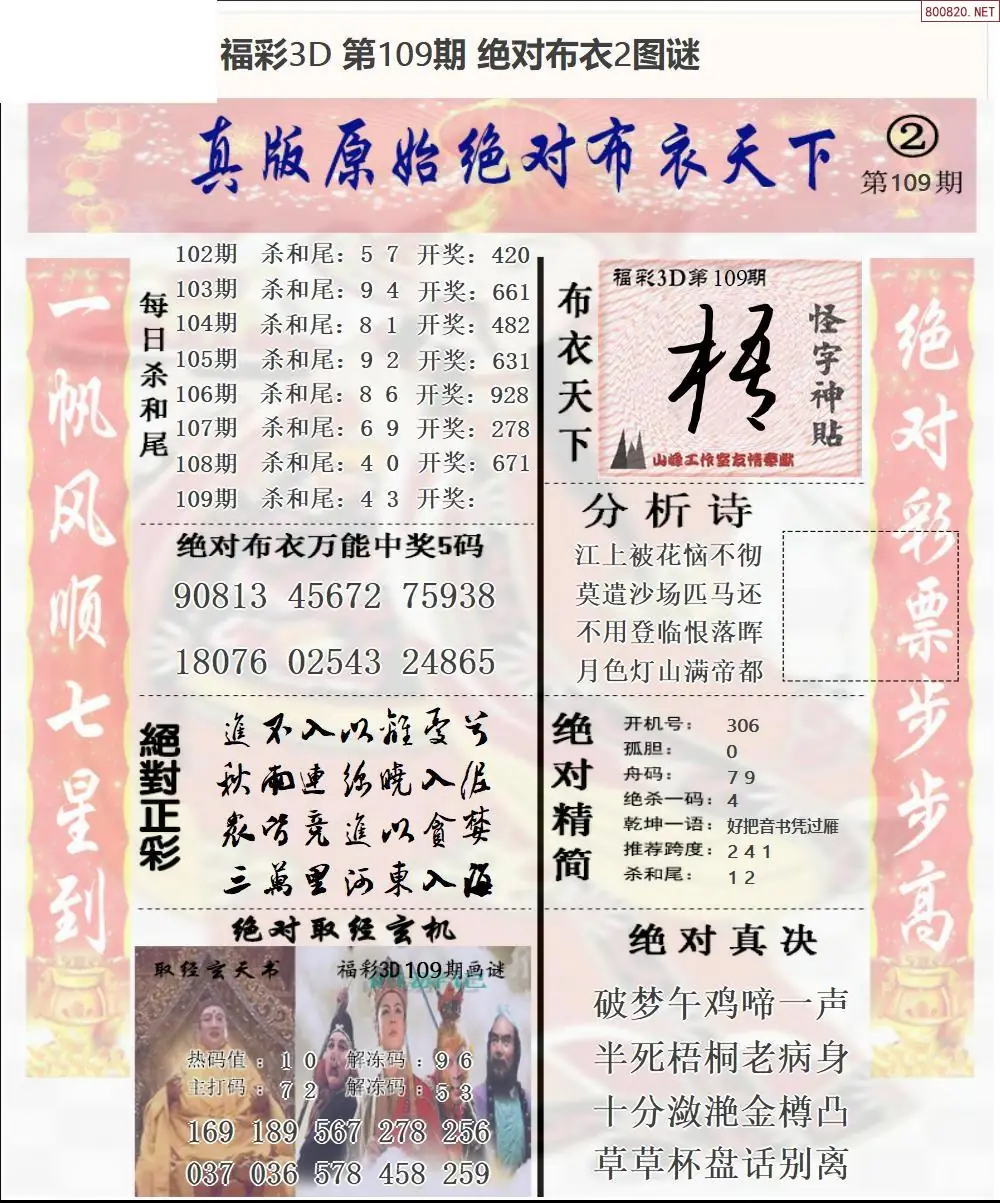 800820.NET
福彩3D 第109期 绝对布衣2图谜
真版原始绝对布衣天下
②
第109期
一帆风顺七星到
每日杀和尾
102期 杀和尾：5 7 开奖：420
103期 杀和尾：9 4 开奖：661
104期 杀和尾：8 1 开奖：482
105期 杀和尾：9 2 开奖：631
106期 杀和尾：8 6 开奖：928
107期 杀和尾：6 9 开奖：278
108期 杀和尾：4 0 开奖：671
109期 杀和尾：4 3 开奖：
绝对布衣万能中奖5码
90813 45672 75938
18076 02543 24865
絕對正彩
進不入以離憂兮
秋雨連綿曉入泥
衆皆競進以貪婪
三萬里河東入海
绝对取经玄机
取经玄天书
福彩3D109期画谜
热码值：1 0 解冻码：9 6
主打码：7 2 解冻码：5 3
169 189 567 278 256
037 036 578 458 259
布衣天下
福彩3D第109期
梧
怪字神貼
山峰工作室友情奉献
分析诗
江上被花恼不彻
莫遣沙场匹马还
不用登临恨落晖
月色灯山满帝都
绝对精简
开机号：306
孤胆：0
舟码：7 9
绝杀一码：4
乾坤一语：好把音书凭过雁
推荐跨度：2 4 1
杀和尾：1 2
绝对真决
破梦午鸡啼一声
半死梧桐老病身
十分潋滟金樽凸
草草杯盘话别离
绝对彩票步步高